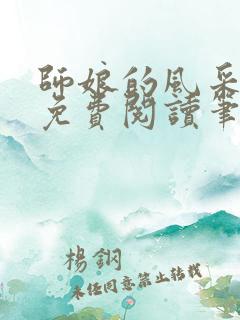 師娘的風采
免費閱讀筆
楊鋼
未經同意禁止轉載